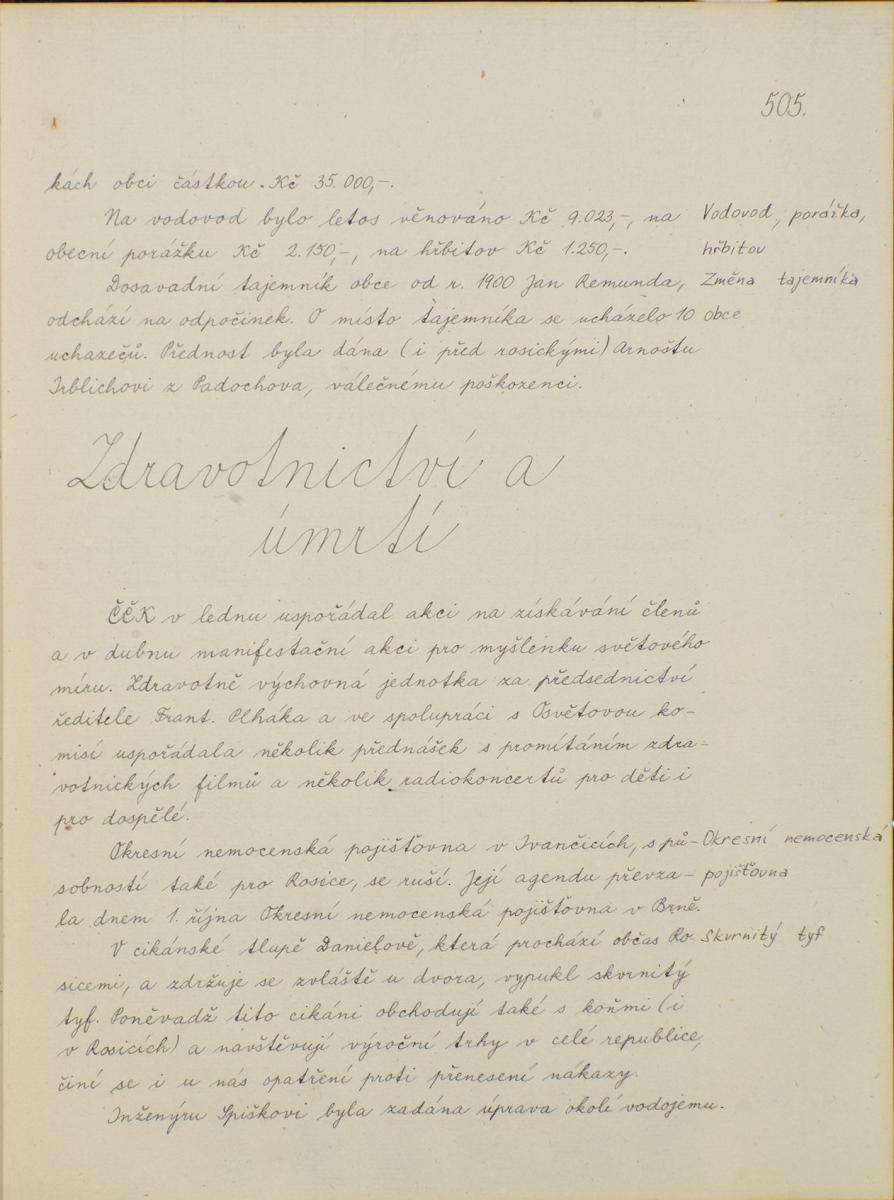 505.
kách obci částkou. Kč 35.000,-.
Na vodovod bylo letos věnováno Kč 9.023,-, na
Vodovod, porážka,
obecní porážku Kč 2.150,-, na hřbitov Kč 1.250,-.
hřbitov
Dosavadní tajemník obce od r. 1900 Jan Remunda,
Změna tajemníka
odchází na odpočinek. O místo tajemníka se ucházelo 10
obce
uchazečů. Přednost byla dána (i před rosickými) Arnoštu
Irblichovi z Padochova, válečnému poškozenci.
Zdravotnictví a
úmrtí
ČČK v lednu uspořádal akci na získávání členů
a v dubnu manifestační akci pro myšlenku světového
míru. Zdravotně výchovná jednotka za předsednictví
ředitele Frant. Plháka a ve spolupráci s Osvětovou ko-
misí uspořádala několik přednášek s promítáním zdra-
votnických filmů a několik radiokoncertů pro děti i
pro dospělé.
Okresní nemocenská pojišťovna v Ivančicích, s pů-
Okresní nemocenská
sobností také pro Rosice, se ruší. Její agendu převza-
pojišťovna
la dnem 1. října Okresní nemocenská pojišťovna v Brně.
V cikánské tlupě Danielově, která prochází občas Ro-
Skvrnitý tyf
sicemi, a zdržuje se zvláště u dvora, vypukl skvrnitý
tyf. Poněvadž tito cikáni obchodují také s koňmi (i
v Rosicích) a navštěvují výroční trhy v celé republice,
činí se i u nás opatření proti přenesení nákazy.
Inženýru Spiškovi byla zadána úprava okolí vodojemu.